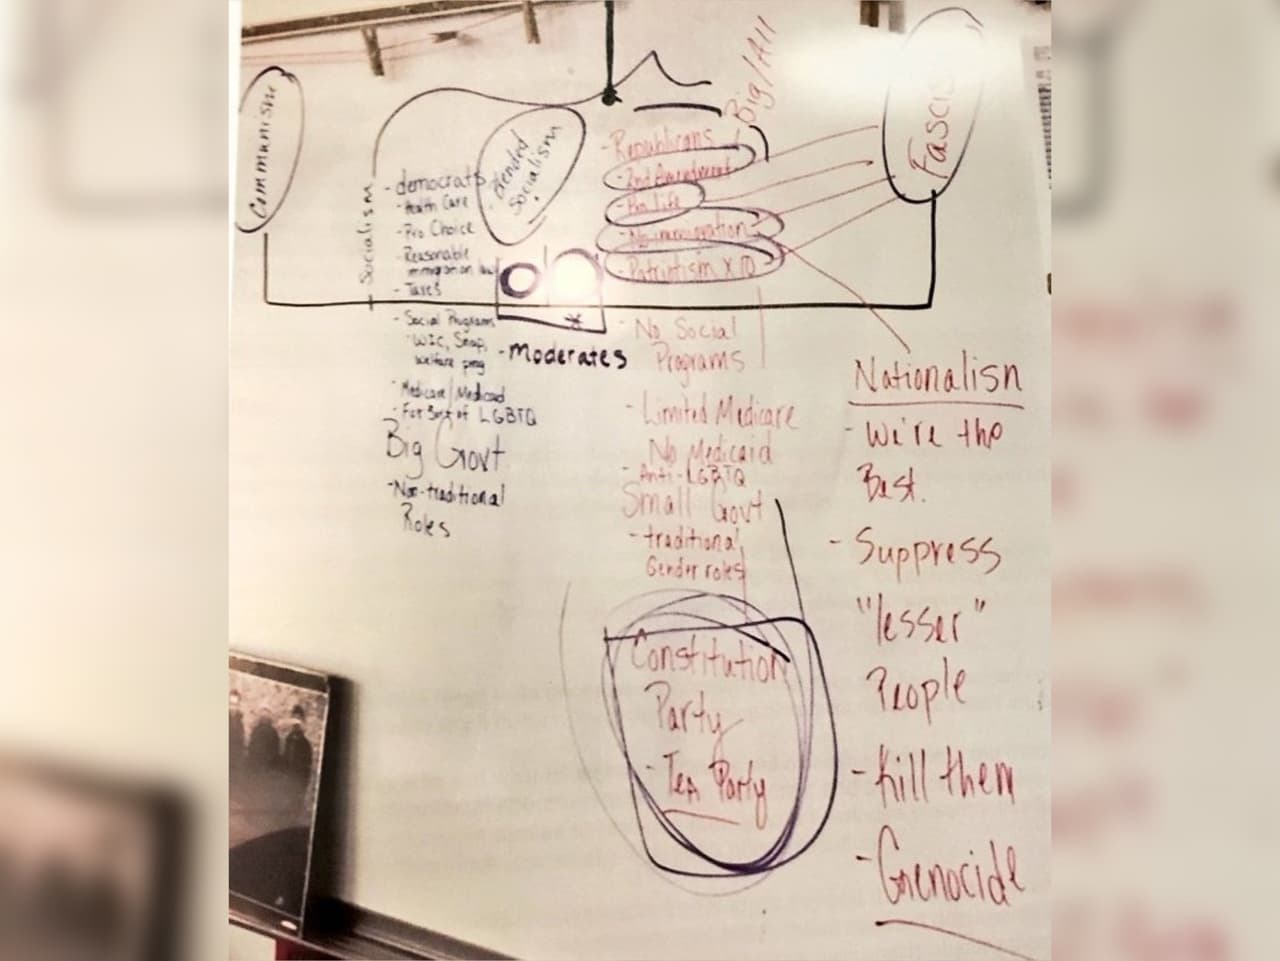 Communism
Socialism
- democrats
- Health Care
- Pro Choice
- Reasonable
immigration law
- Taxes
- Social Programs
- WIC, Snap,
welfare prog
- Medicare/Medicaid
- For Supt of LGBTQ
Big Govt
- Non-traditional
Roles
Blended
Socialism
- Moderates
Big/All
- Republicans
- 2nd Amendment
- Pro life
- No immigration
- Patriotism x 10
- No Social
Programs
- Limited Medicare
No Medicaid
- Anti-LGBTQ
Small Govt
- traditional
Gender roles
Constitution
Party
- Tea Party
Nationalism
- We're the
Best.
- Suppress
"lesser"
People
- Kill them
- Genocide